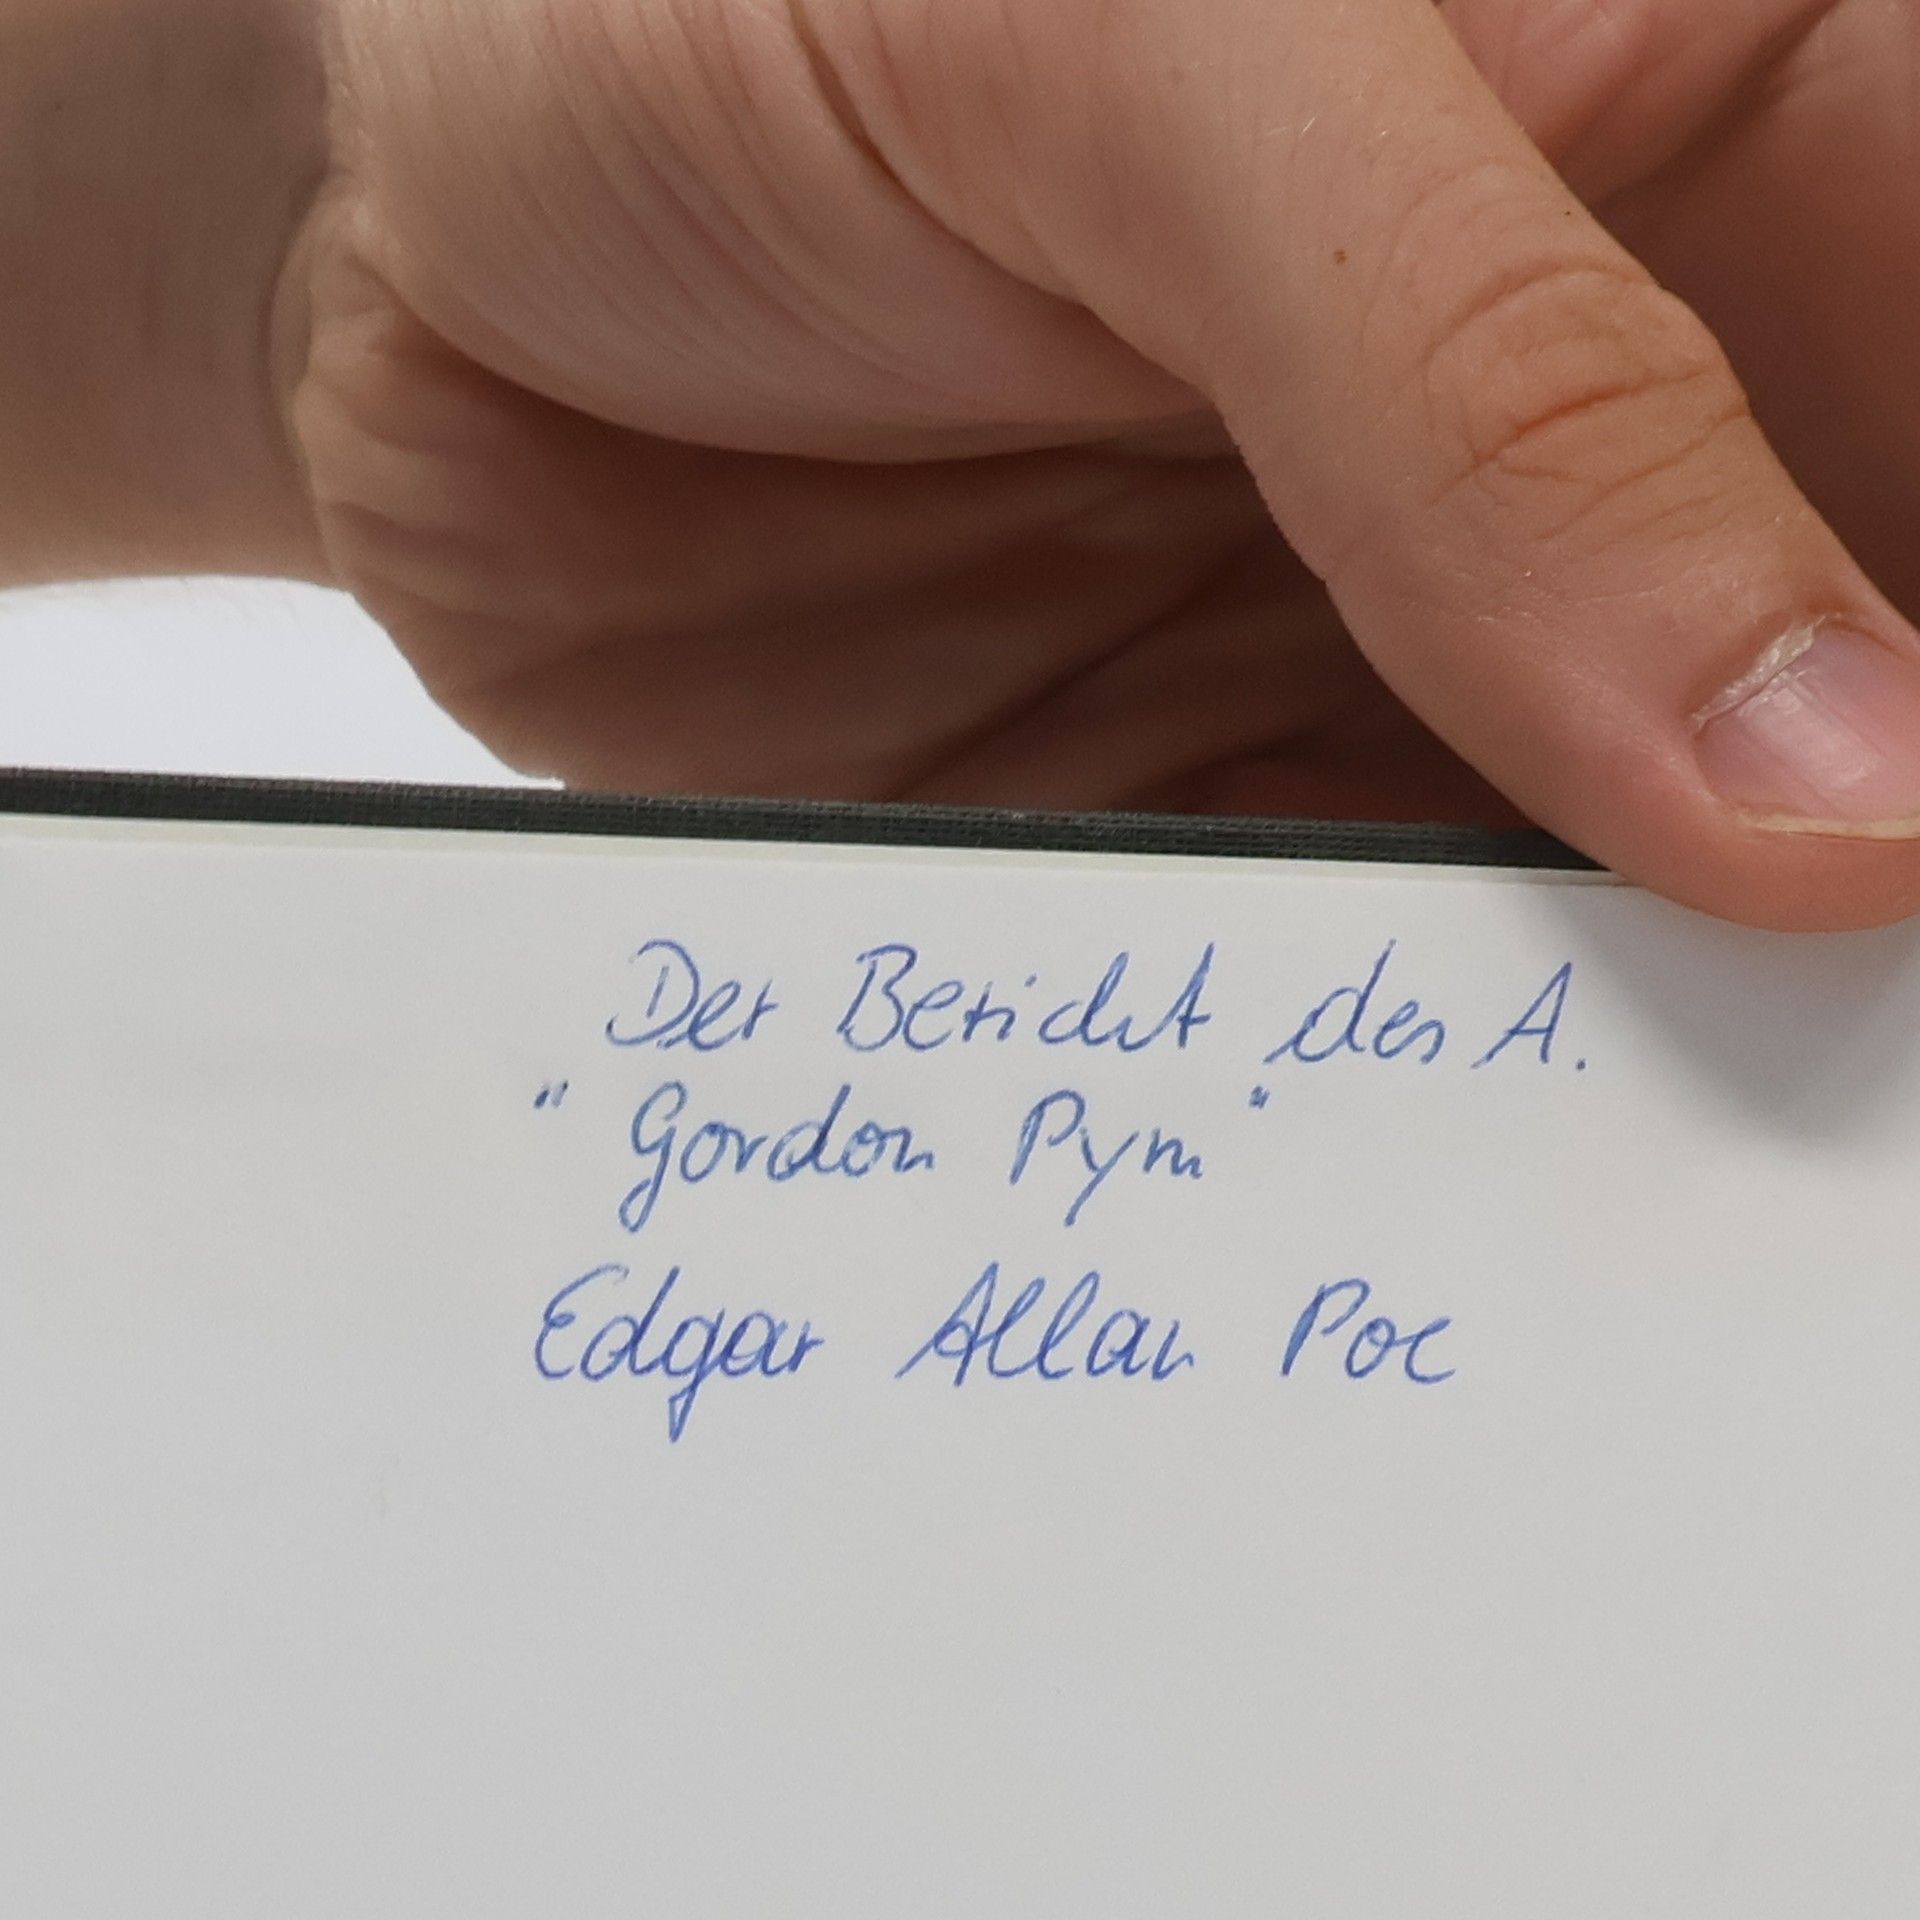 Der Bericht des A.
" Gordon Pym "
Edgar Allan Poe